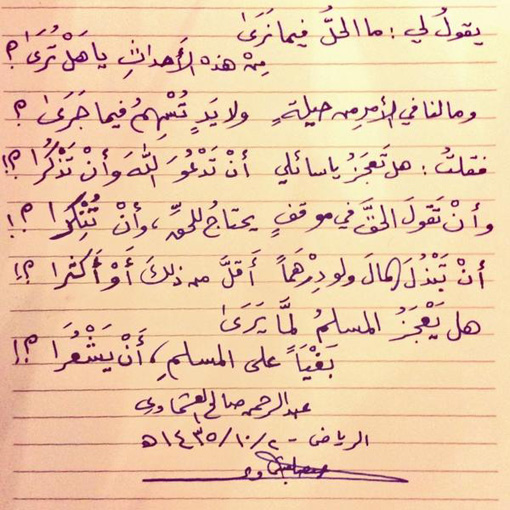 يقولُ لي : ما الحلُّ فيما نَرَىٰ
مِنْ هذه الأَحداثِ يا هَلْ تُرَىٰ ؟
وما لنا في الأمرِ من حيلةٍ ولا يَدٍ تُسْهِمُ فيما جَرَىٰ ؟
فقلتُ : هل تَعجَزُ يا سائلي أنْ تَدْعُوَ اللهَ وأنْ تَذْكُرَا ؟!
وأنْ تَقولَ الحقَّ في موقفٍ يحتاجُ للحقِّ ، وأنْ تُنْكِرَا ؟!
أنْ تَبْذُلَ المالَ ولو دِرْهَماً أَقلَّ من ذلكَ أَوْ أَكثرا ؟!
هل يَعْجَزُ المسلمُ لمَّا يَرَىٰ
بَغْيَاً على المسلمِ ، أَنْ يَشْعُرَا ؟!
عبدالرحمن صالح العشماوي
الرياض - ١٤٣٥/١٠/٢هـ